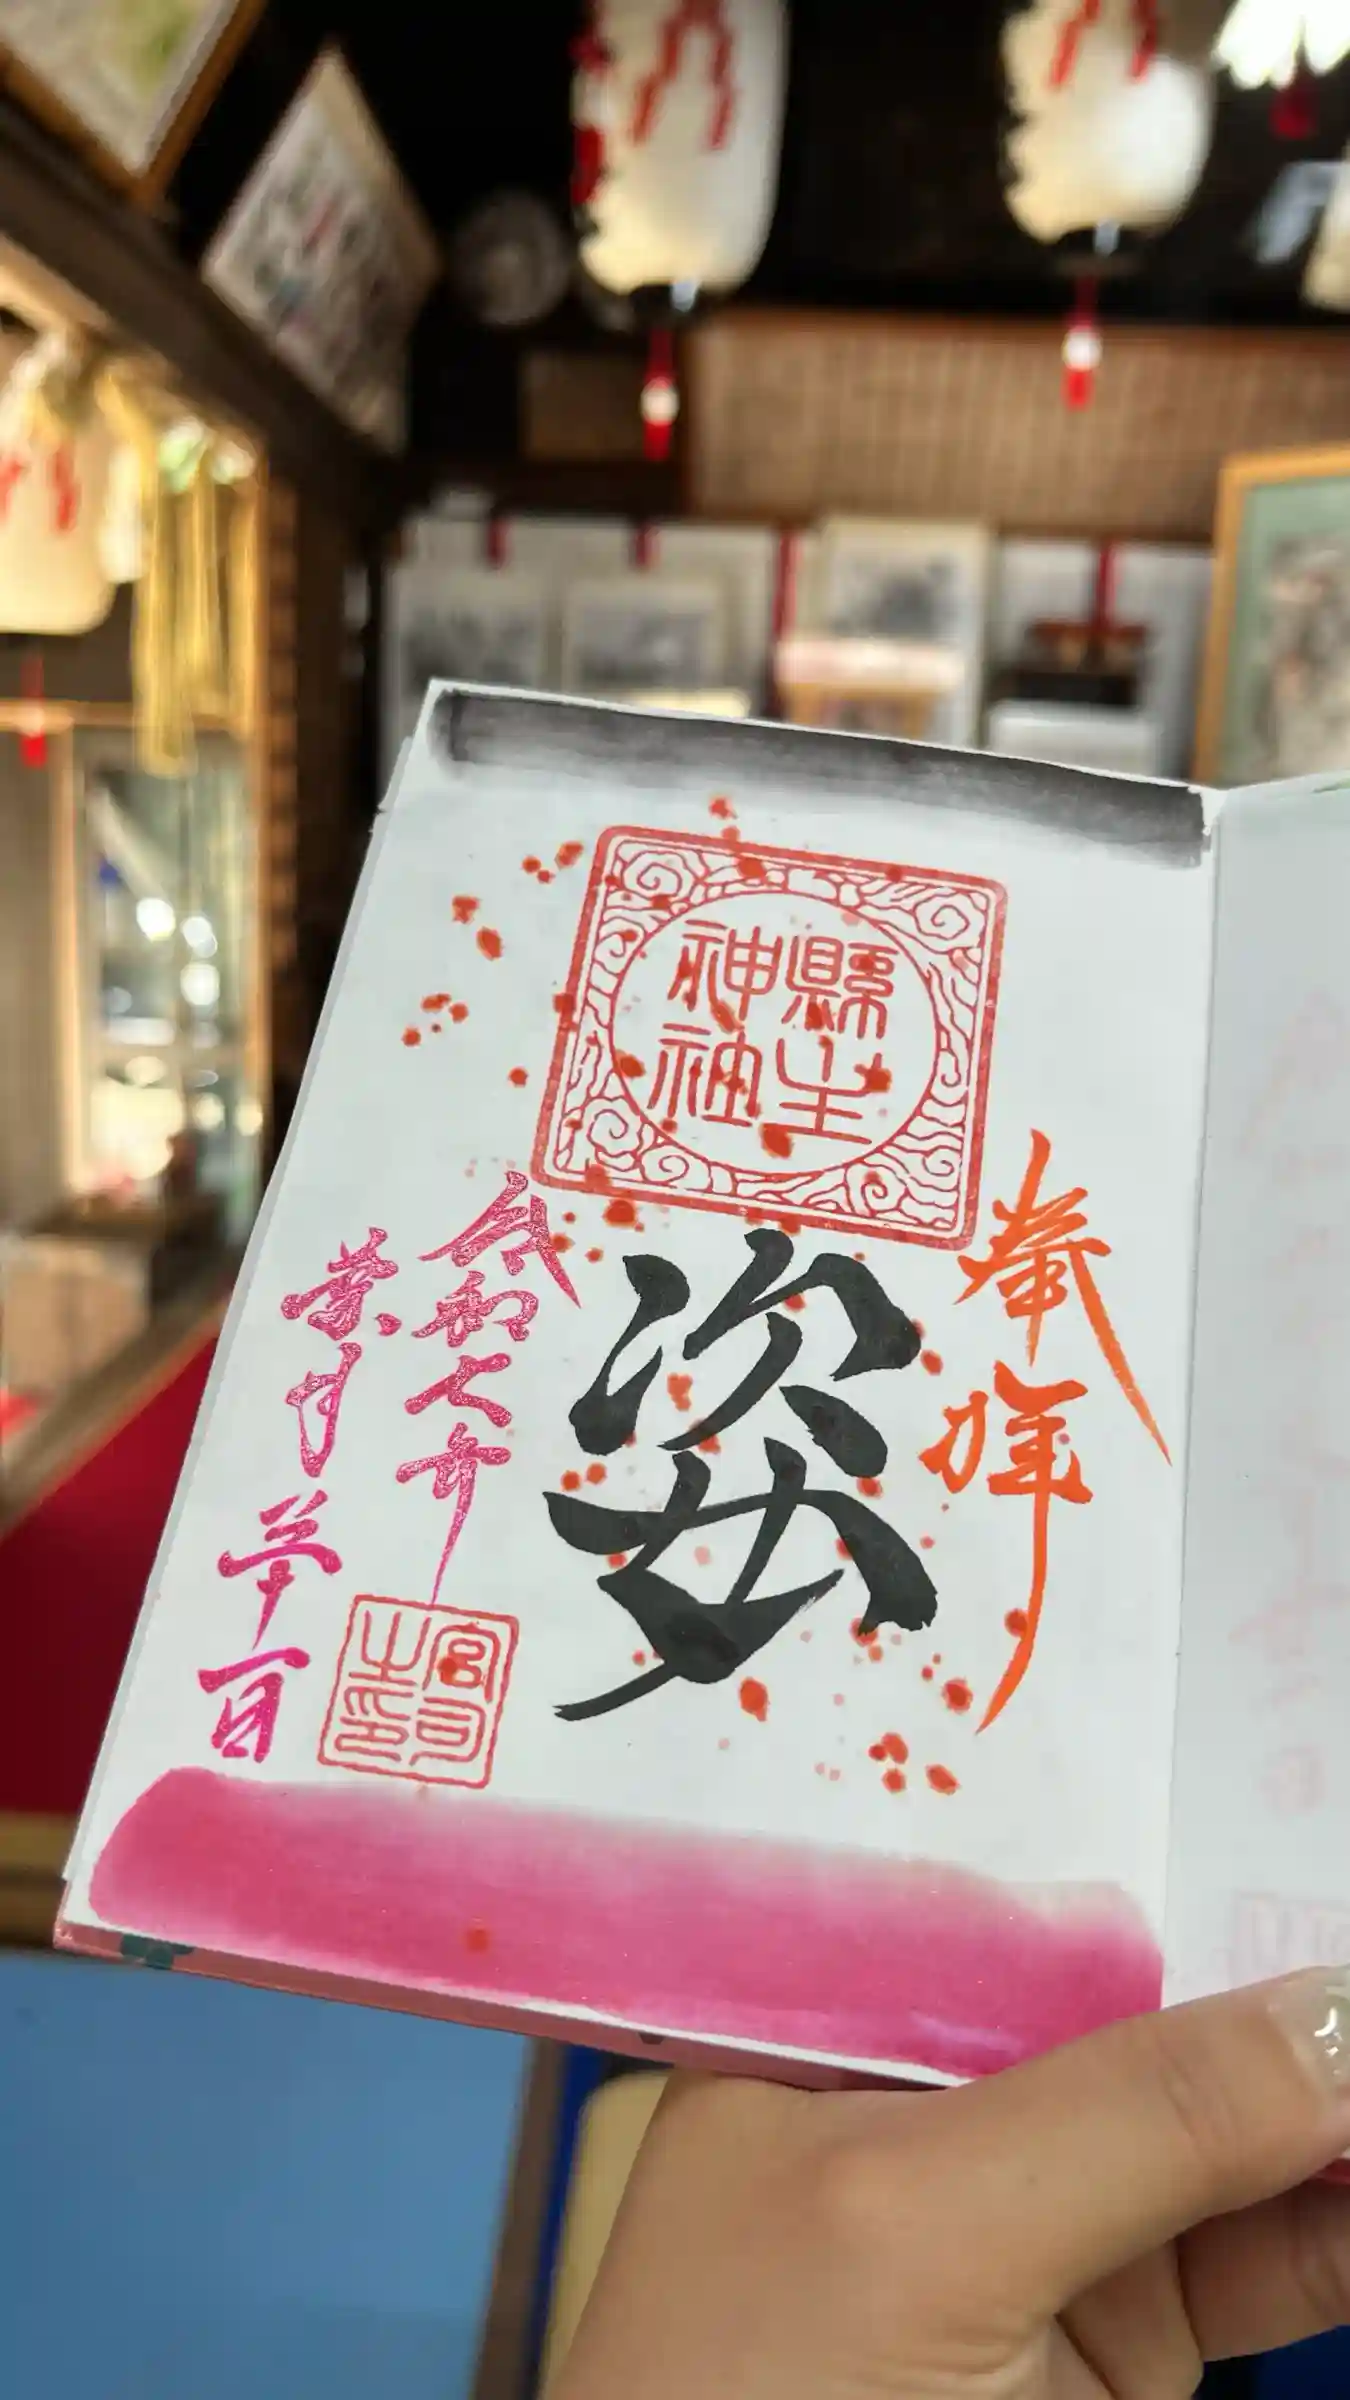 奉拝
縣主
神社
姿
令和七年
葉月
日
宮司
之印